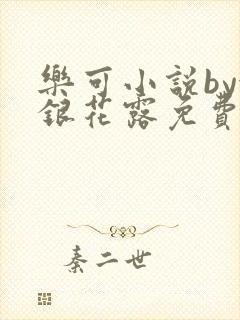 樂可小說by
銀花露免費
秦二世